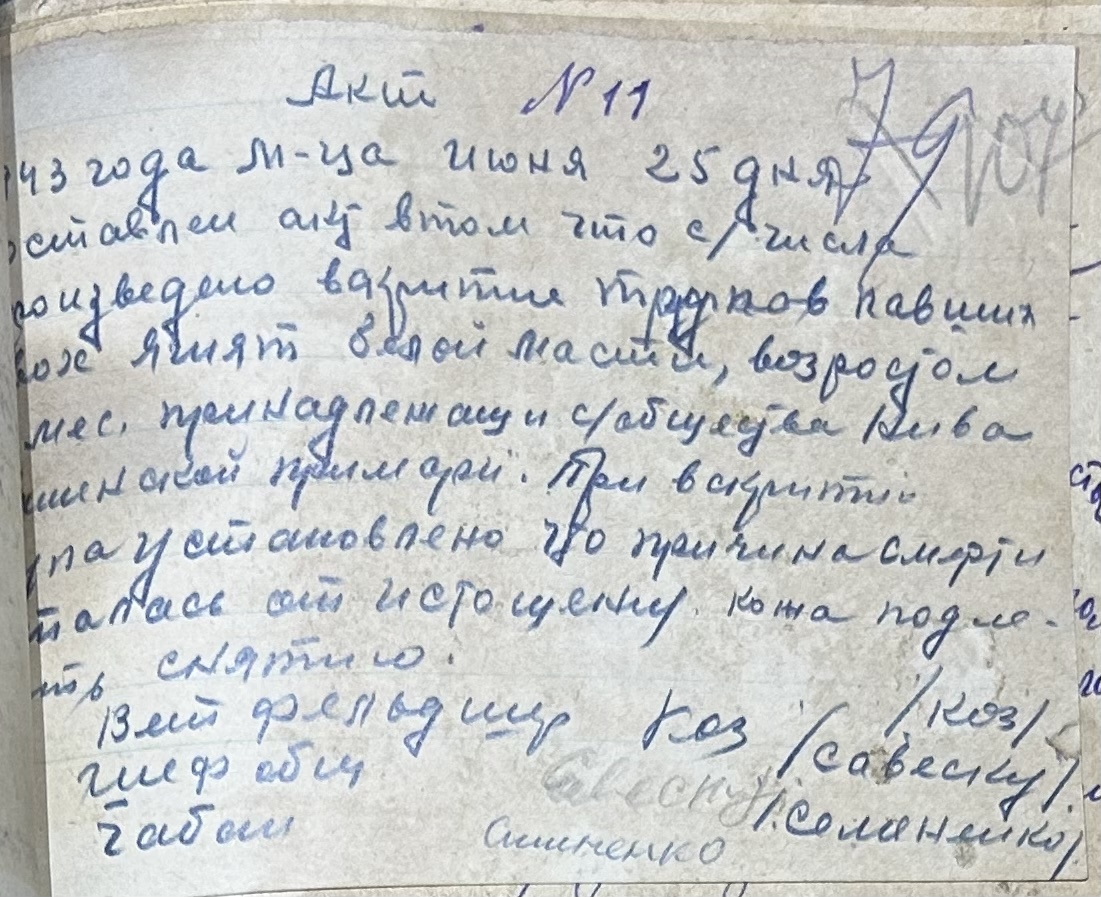 Акт № 11
79
43 года м-ца июня 25 дня
оставлен акт втом что с/числа
роизведено вскритие трупов павших
вох ягнят белой масти, возростом
мес. принадлежащи с/общества Нива
шинской примари. При вскритии
упа установлено что причина смерти
талась от истощению. кожа подле-
ить снятию.
Вет фельдшер Коз /Коз/
шеф общ Савеску /Савеску/
Чабан /Семененко/